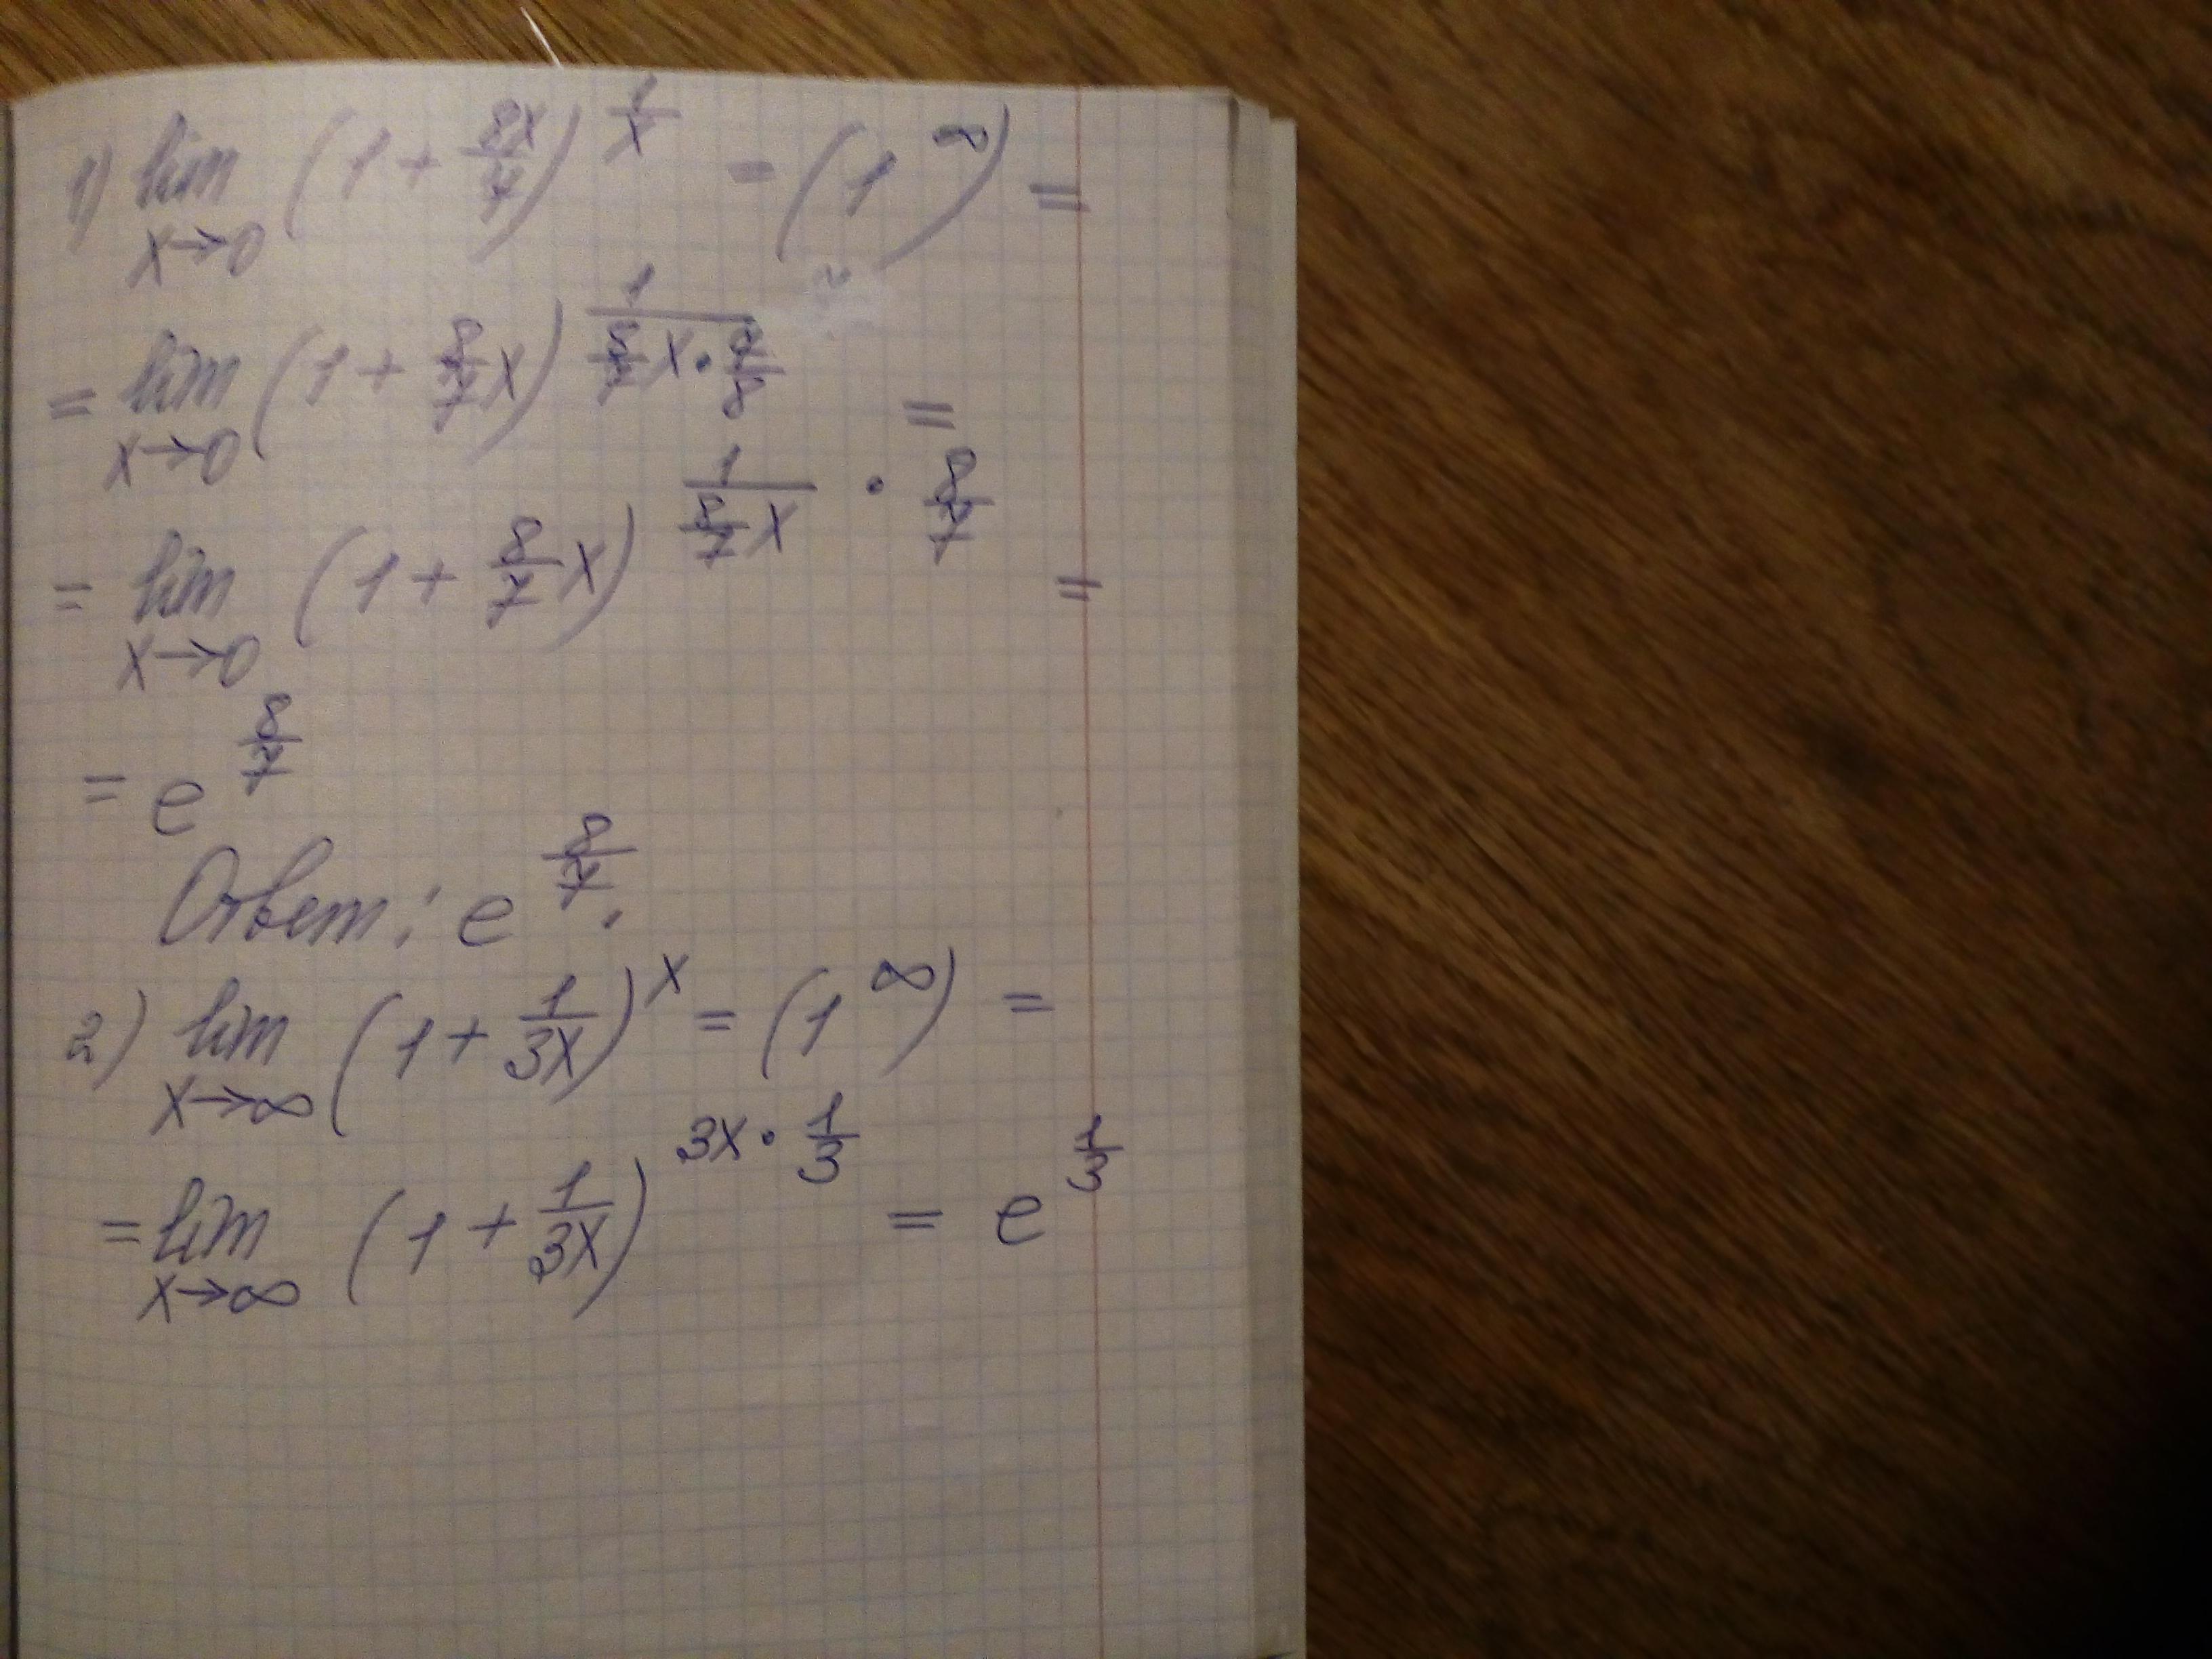 1) lim x→0 (1 + 8x/7)^(1/x) = (1^∞) =
= lim x→0 (1 + 8/7 x)^(1/(8/7 x · 7/8)) =
= lim x→0 (1 + 8/7 x)^(1/(8/7 x) · 8/7) =
= e^(8/7)
Ответ: e^(8/7).
2) lim x→∞ (1 + 1/3x)^x = (1^∞) =
= lim x→∞ (1 + 1/3x)^(3x · 1/3) = e^(1/3)